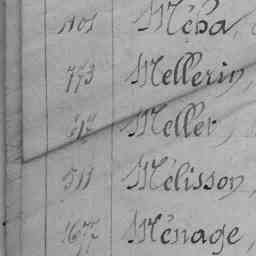 1101 Méba,
773 Mellerin,
Meller,
511 Mélisson,
1677 Ménage,